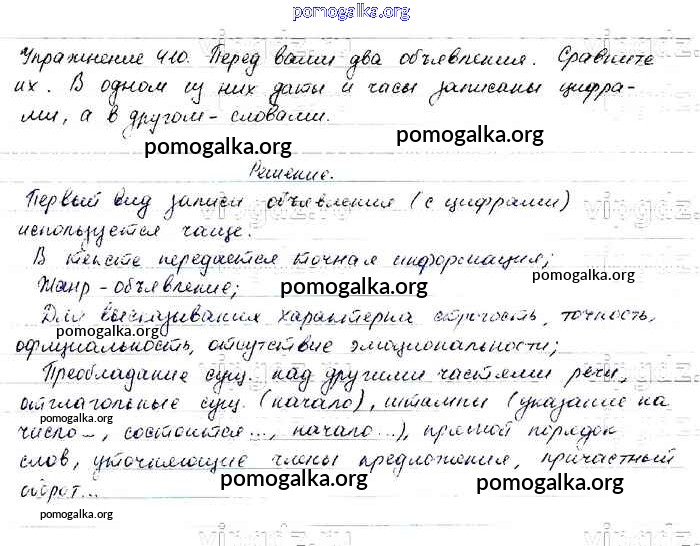 pomogalka.org
Упражнение 410. Перед вами два объявления. Сравните
их. В одном из них даты и часы записаны цифра-
ми, а в другом - словами.
pomogalka.org
pomogalka.org
Решение.
Первый вид записи объявления (с цифрами)
используется чаще.
В тексте передается точная информация;
pomogalka.org
Жанр - объявление;
pomogalka.org
Для высказывания характерна строгость, точность,
pomogalka.org
официальность, отсутствие эмациональности;
Преобладание сущ. над другими частями речи,
отглагольные сущ. (начало), штампы (указание на
pomogalka.org
число..., состоится..., начало...), прямой порядок
pomogalka.org
слов, уточняющие члены предложения, причастный
оборот...
pomogalka.org
pomogalka.org
pomogalka.org
vingdz.ru